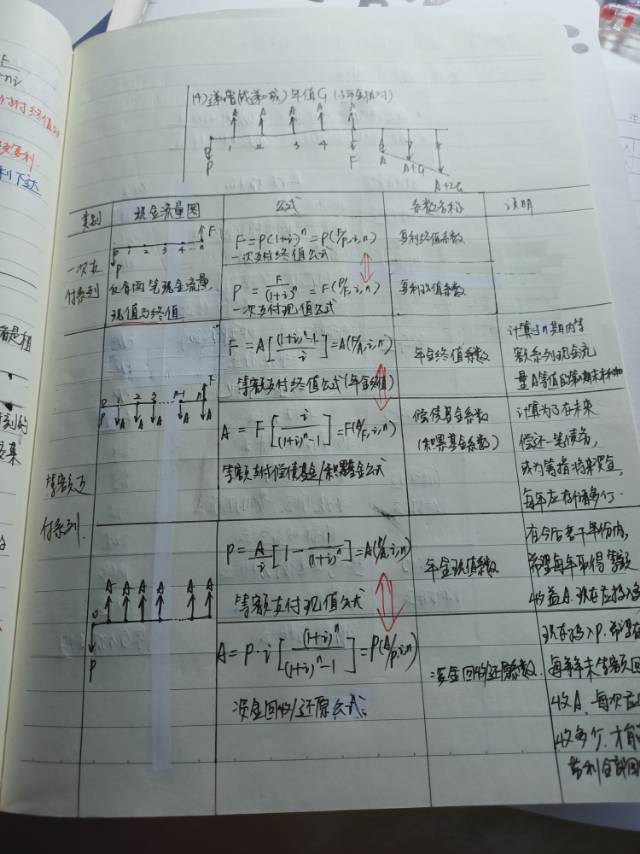 (4) 递增(或递减)年值G
P 1 2 3 4 F A A+G A+2G
类别 现金流量图 公式 系数名称 说明
一次支付系列
P 1 2 3 4 n F
仅有两笔现金流量,
现值与终值
F=P(1+i)^n=P(F/P,i,n)
一次支付终值公式
复利终值系数
P=F/(1+i)^n=F(P/F,i,n)
一次支付现值公式
复利现值系数
等额支付系列
0 1 2 3 n-1 n F
A A A A A
F=A[((1+i)^n-1)/i]=A(F/A,i,n)
等额支付终值公式(年金终值)
年金终值系数
计算过n期内等
额系列现金流
量A等值的第n期末
A=F[i/((1+i)^n-1)]=F(A/F,i,n)
等额支付偿债基金/积累基金公式
偿债基金系数
(积累基金系数)
计算为了在未来
偿还一笔债务,
或为筹措将来资金,
每年应存储多少.
A A A A A A
0
P
P=A/i[1-1/(1+i)^n]=A(P/A,i,n)
等额支付现值公式
年金现值系数
在今后若干年份内,
希望每年取得等额
收益A,现在应投入
A=P·i[(1+i)^n/((1+i)^n-1)]=P(A/P,i,n)
资金回收/还原公式
资金回收/还原系数.
现在投入P,希望在
每年年末等额回
收A,每次应
收多少,才有
带利全部回